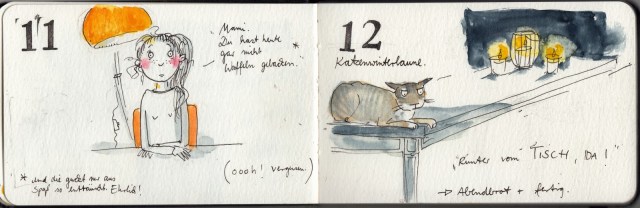 11
"Mami.
Du hast heute
gar nicht
Waffeln gebacken." *
* und die guckt nur aus
Spaß so enttäuscht. Ehrlich!
(oooh! vergessen.)
12
Katzenwinterlaune.
"Runter vom TISCH, DA!"
→ Abendbrot + fertig.